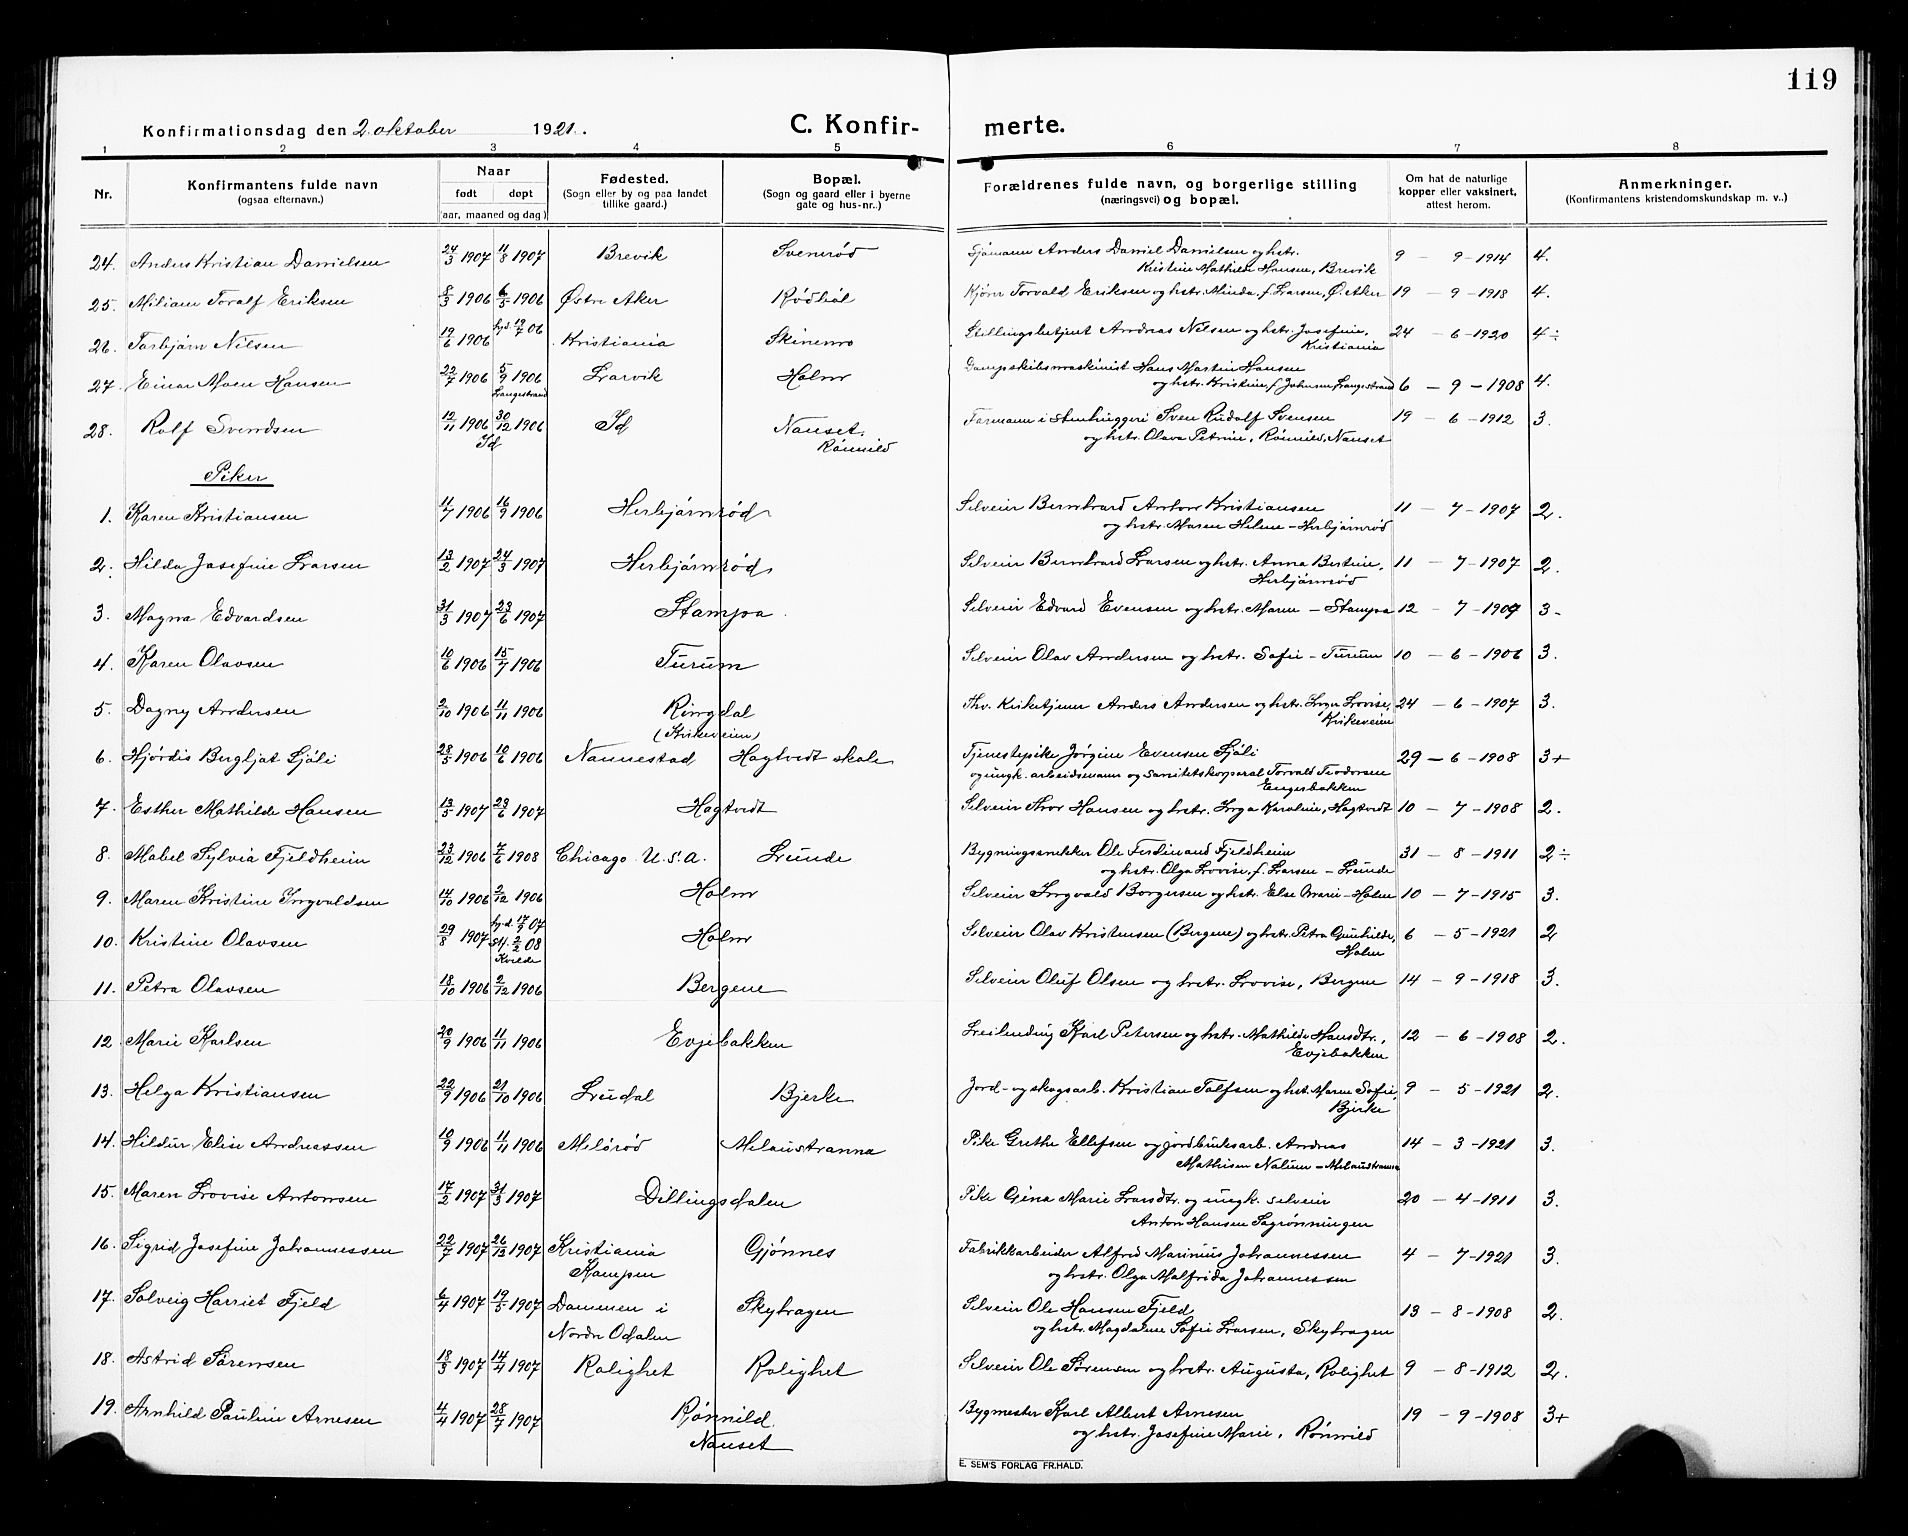 119
Konfirmationsdag den 2. oktober 1921.
C. Konfir- merte.
1 2 3 4 5 6 7 8
Nr.
Konfirmantens fulde navn
(ogsaa efternavn.)
Naar
født døpt
(aar, maaned og dag)
Fødested.
(Sogn eller by og paa landet
tillike gaard.)
Bopæl.
(Sogn og gaard eller i byerne
gate og hus-nr..)
Forældrenes fulde navn, og borgerlige stilling
(næringsvei) og bopæl.
Om hat de naturlige
kopper eller vaksinert,
attest herom.
Anmerkninger.
(Konfirmantens kristendomskundskap m. v..)
24. Anders Kristian Danielsen 24/3 1907 11/8 1907 Brevik Svenerød Sjømann Anders Daniel Danielsen og hstr. 9 - 9 - 1914 4.
Kristine Mathilde Hansen, Brevik
25. Miliam Toralf Eriksen 8/3 1906 6/5 1906 Østre Aker Rødbøl Kjører Torvald Eriksen og hstr. Minda f. Larsen, Ø. Aker 19 - 9 - 1918 4.
26. Torbjørn Nilsen 19/6 1906 hjd. 19/7 06 Kristiania Skinmo Stillingsbetjent Andreas Nilsen og hstr. Josefine, 24 - 6 - 1920 4 ÷
Kristiania
27. Einar Moen Hansen 22/7 1906 5/9 1906 Larvik Holm Dampskibsmaskinist Hans Martin Hansen
Langestrand og hstr. Kristine, f. Johnsen, Langestrand 6 - 9 - 1908 4.
28. Rolf Svendsen 12/11 1906 30/12 1906 Id Nanset, Formann i stenhuggeri Sven Rudolf Svensen 19 - 6 - 1912 3.
Id Rønnild og hstr. Olava Petrine, Rønnild, Nanset
Piker
1. Karen Kristiansen 11/7 1906 16/9 1906 Herbjørnrød Selveier Bernhard Anton Kristiansen 11 - 7 - 1907 2.
og hstr. Maren Helene - Herbjørnrød
2. Hilda Josefine Larsen 13/2 1907 24/3 1907 Herbjørnrød Selveier Bernhard Larsen og hstr. Anna Bertine, 11 - 7 - 1907 2.
Herbjørnrød
3. Magna Edvardsen 31/3 1907 23/6 1907 Stampa Selveier Edvard Evensen og hstr. Maren - Stampa 12 - 7 - 1907 3 -
4. Karen Olavsen 10/6 1906 15/7 1906 Furum Selveier Olav Andersen og hstr. Sofie - Furum 10 - 6 - 1906 3.
5. Dagny Andersen 2/10 1906 11/11 1906 Ringdal Fhv. Kirketjener Anders Andersen og hstr. Inger Lovise, 24 - 6 - 1907 3.
(Kirkeveien) Kirkeveien
6. Hjørdis Bergljot Sjøli 28/5 1906 10/6 1906 Nannestad Hagtvedt skole Tjenestepike Jørgine Evensen Sjøli 29 - 6 - 1908 3+
og ungk. arbeidsmann og sanitetskorporal Torvald Teodorsen
Engerbakken
7. Esther Mathilde Hansen 13/5 1907 23/6 1907 Hagtvedt Selveier Thor Hansen og hstr. Inga Karoline, Hagtvedt 10 - 7 - 1908 2.
8. Mabel Sylvia Fjeldheim 23/12 1906 7/6 1908 Chicago U.S.A. Lunde Bygningssnekker Ole Ferdinand Fjeldheim 31 - 8 - 1911 2 ÷
og hstr. Olga Lovise, f. Larsen - Lunde
9. Maren Kristine Ingvaldsen 14/10 1906 2/12 1906 Holm Selveier Ingvald Borgersen og hstr. Else Marie - Holm 10 - 7 - 1915 3.
10. Kristine Olavsen 29/8 1907 hjd. 17/9 07 Holm Selveier Olav Kristensen (Bergene) og hstr. Petra Gunhilde, 6 - 5 - 1921 2
st. 2/2 08 Holm
Kvelde
11. Petra Olavsen 18/10 1906 2/12 1906 Bergene Selveier Oluf Olsen og hstr. Lovise, Bergene 14 - 9 - 1918 3.
12. Marie Karlsen 20/9 1906 11/11 1906 Evjebakken Leilending Karl Petersen og hstr. Mathilde Hansdtr., 12 - 6 - 1908 2.
Evjebakken
13. Helga Kristiansen 22/9 1906 21/10 1906 Ludal Bjerke Jord- og skogsarb. Kristian Tolfsen og hst. Maren Sofie, 9 - 5 - 1921 2.
Bjerke
14. Hildur Elise Andreassen 10/9 1906 11/11 1906 Melørød Melaustranna Pike Grethe Ellefsen og jordbruksarb. Andreas 14 - 3 - 1921 3.
Mathisen Nalum - Melaustranna
15. Maren Lovise Antonsen 17/2 1907 31/3 1907 Dillingsdalen Pike Gina Marie Larsdtr. og ungk. selveier 20 - 4 - 1911 3.
Anton Hansen Sagrønningen
16. Sigrid Josefine Johannessen 22/7 1907 26/12 1907 Kristiania Gjønnes Fabrikkarbeider Alfred Marinius Johannessen 4 - 7 - 1921 3.
Kampen og hstr. Olga Malfrida Johannessen
17. Solveig Harriet Fjeld 6/4 1907 19/5 1907 Dammen i Skyhagen Selveier Ole Hansen Fjeld 13 - 8 - 1908 2.
Nordre Odalen og hstr. Magdalene Sofie Larsen, Skyhagen
18. Astrid Sørensen 18/3 1907 14/4 1907 Rolighet Rolighet Selveier Ole Sørensen og hstr. Augusta, Rolighet 9 - 8 - 1912 2.
19. Arnhild Pauline Arnesen 4/4 1907 28/7 1907 Rønnild, Bygmester Karl Albert Arnesen 19 - 9 - 1908 3+
Nanset og hstr. Josefine Marie, Rønnild
E. SEM'S FORLAG FR.HALD.